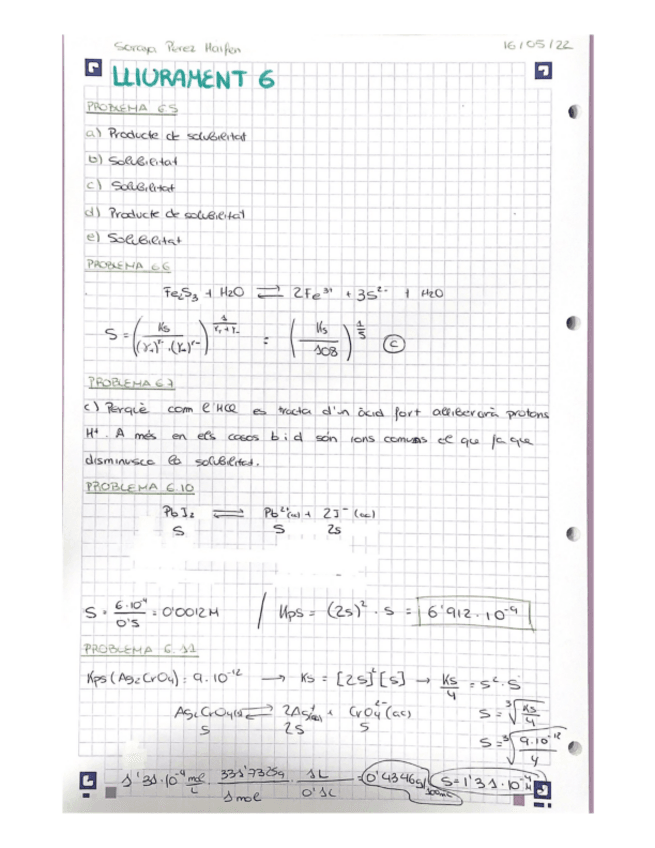 Soraya Pérez 16/05/22
LLIURAMENT 6
PROBLEMA 6.5
a) Producte de solubilitat
b) Solubilitat
c) Solubilitat
d) Producte de solubilitat
e) Solubilitat
PROBLEMA 6.6
Fe₂S₃ + H₂O ⇌ 2Fe³⁺ + 3S²⁻ + H₂O
S = (Ks / (γ₊)^γ⁺ · (γ₋)^γ⁻)^(1/(γ₊+γ₋)) = (Ks / 108)^(1/5) (c)
PROBLEMA 6.7
c) Perquè com l'HCl es tracta d'un àcid fort alliberarà protons
H⁺. A més en els casos b i d són ions comuns el que fa que
disminueixi la solubilitat.
PROBLEMA 6.10
PbI₂ ⇌ Pb²⁺(ac) + 2I⁻(ac)
S S 2S
S = 6·10⁻⁴ / 0'5 = 0'0012M / Kps = (2s)² · s = 6'912 · 10⁻⁹
PROBLEMA 6.11
Kps (Ag₂CrO₄) = 9·10⁻¹² → Ks = [2S]²[S] → Ks/4 = S²·S
Ag₂CrO₄(s) ⇌ 2Ag⁺(ac) + CrO₄²⁻(ac) S = ∛(Ks/4)
S 2S S S = ∛(9·10⁻¹²/4)
1'31·10⁻⁴ mol/L · 331'7325g/1mol · 1L/0'1L = 0'4346g/100mL S = 1'31·10⁻⁴ M